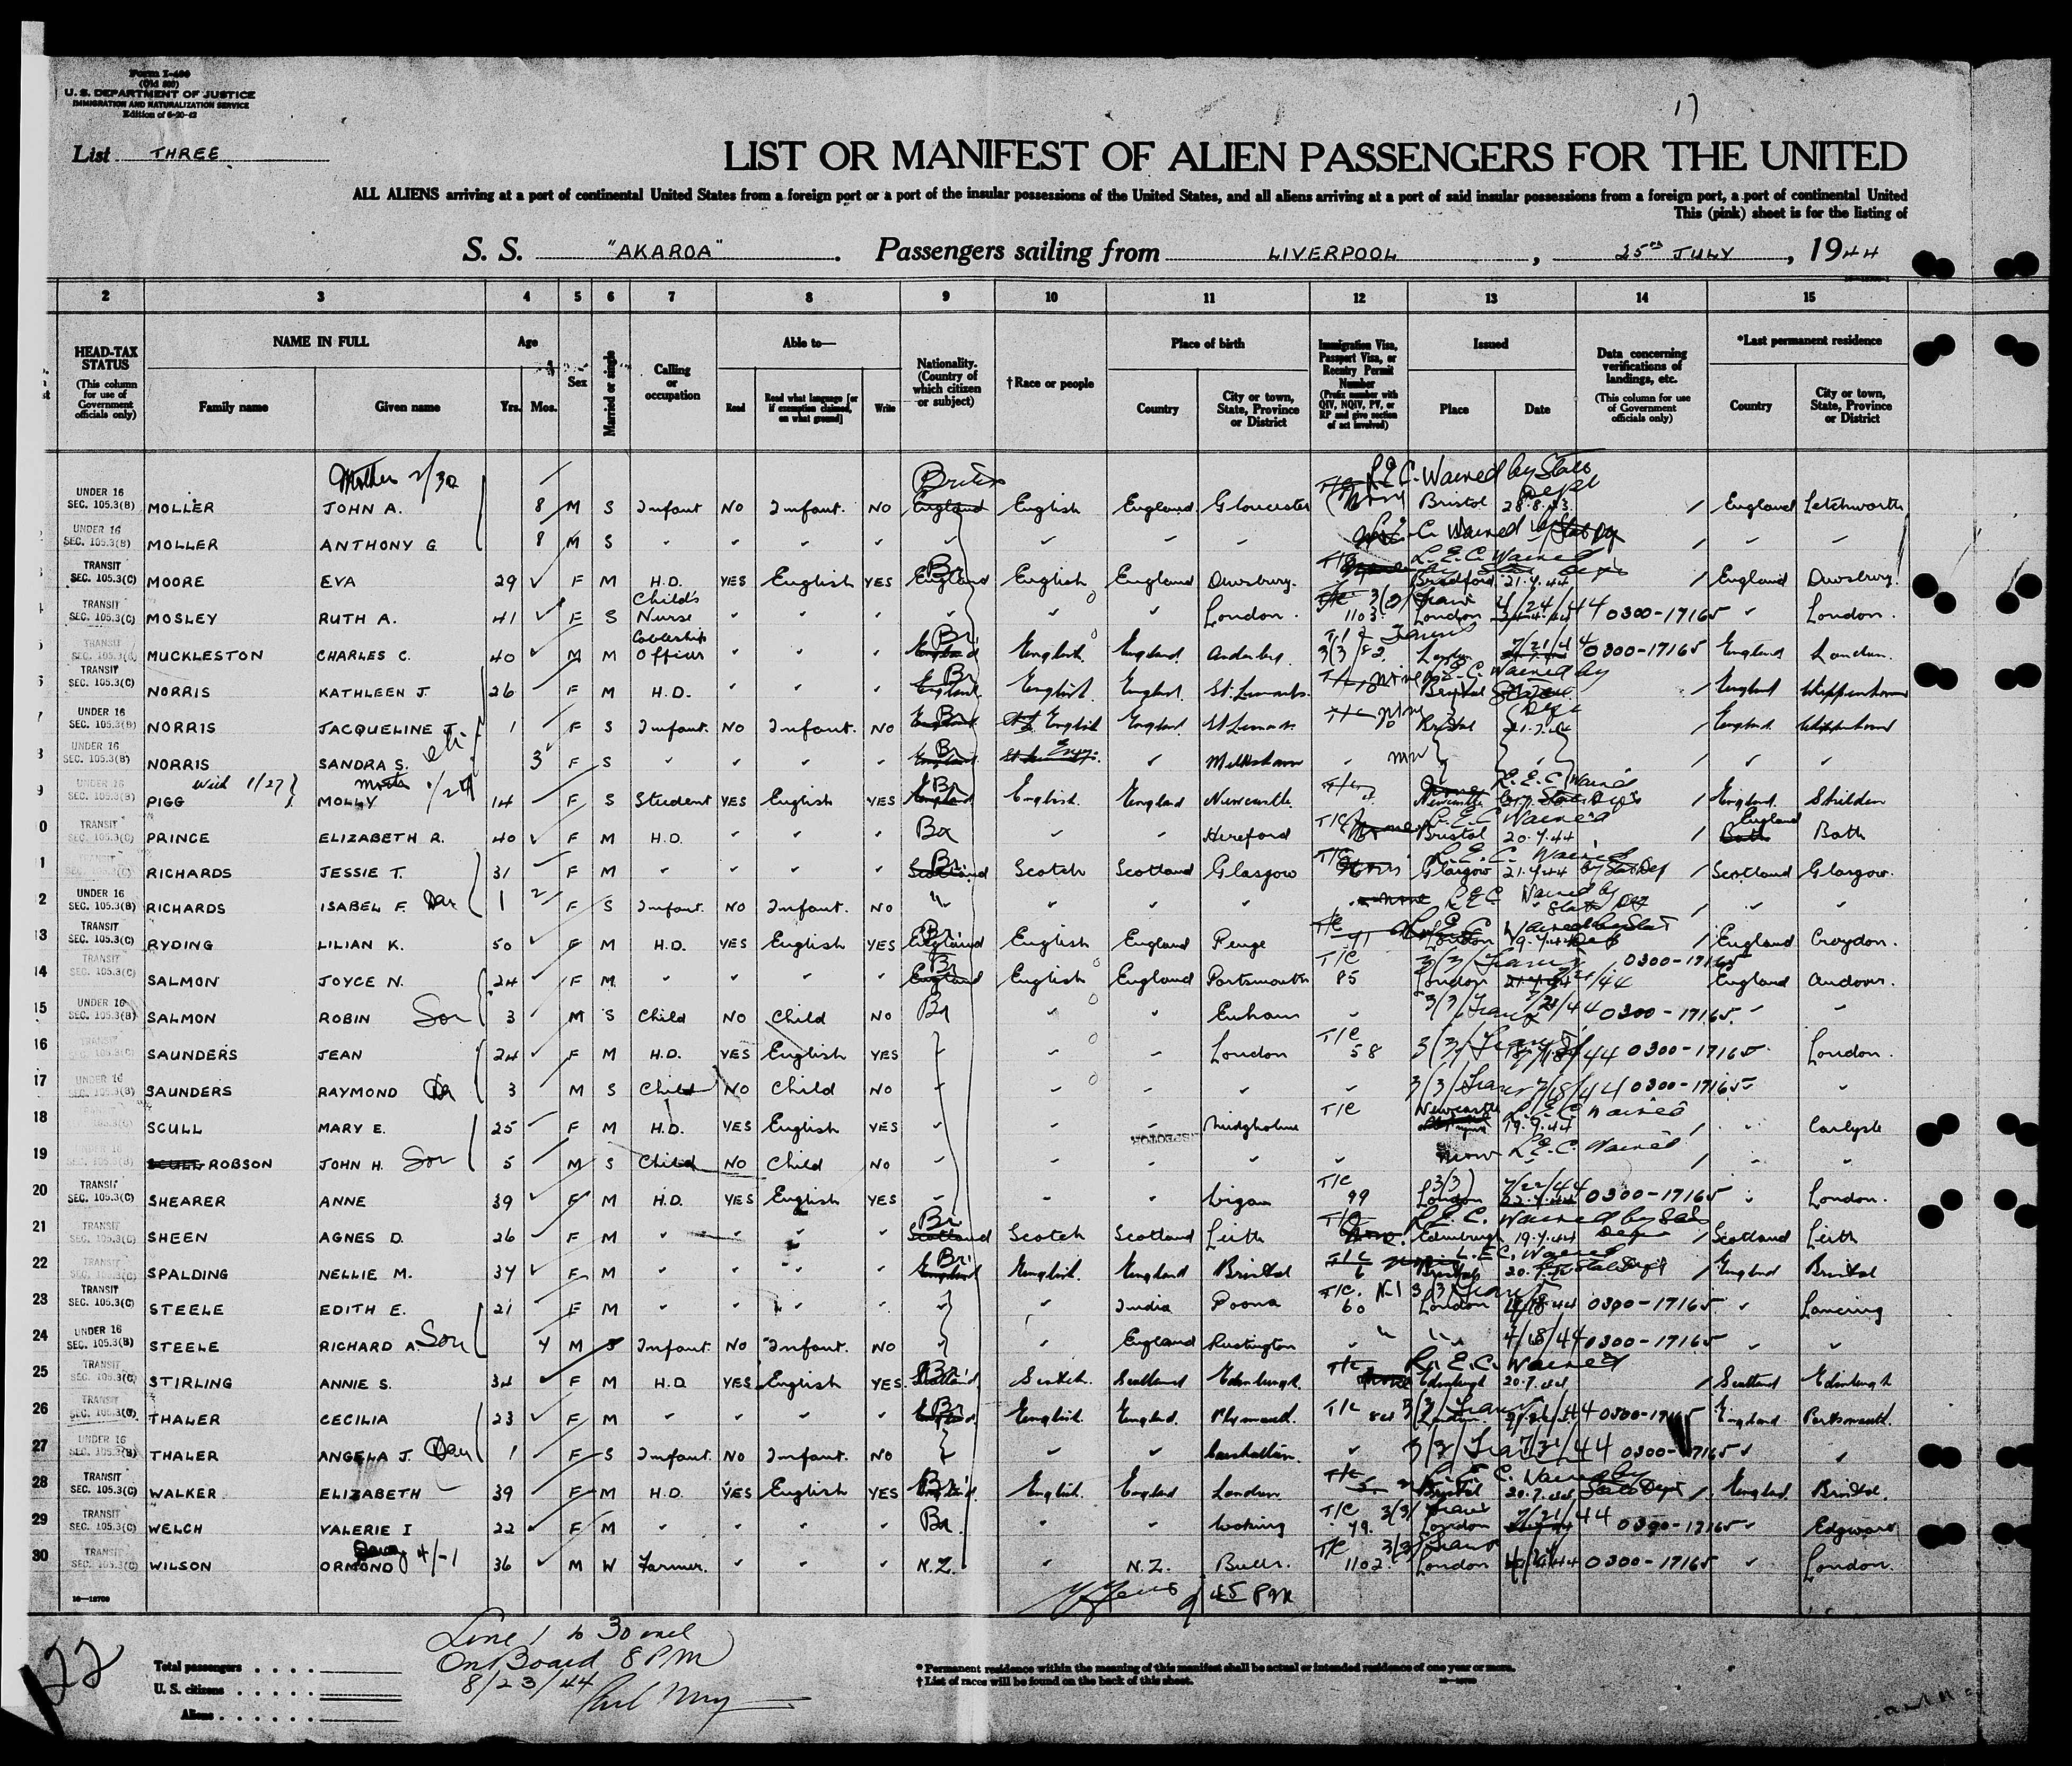 Form I-400
(Old 500)
U. S. DEPARTMENT OF JUSTICE
IMMIGRATION AND NATURALIZATION SERVICE
Edition of 6-20-42
17
List THREE
LIST OR MANIFEST OF ALIEN PASSENGERS FOR THE UNITED
ALL ALIENS arriving at a port of continental United States from a foreign port or a port of the insular possessions of the United States, and all aliens arriving at a port of said insular possessions from a foreign port, a port of continental United
This (pink) sheet is for the listing of
S. S. "AKAROA". Passengers sailing from LIVERPOOL, 25th JULY, 1944
2 3 4 5 6 7 8 9 10 11 12 13 14 15
HEAD-TAX STATUS (This column for use of Government officials only) NAME IN FULL Family name Given name Age Yrs. Mos. Sex Married or single Calling or occupation Able to— Read Read what language [or if exemption claimed, on what ground] Write Nationality. (Country of which citizen or subject) †Race or people Place of birth Country City or town, State, Province or District Immigration Visa, Passport Visa, or Reentry Permit Number (Prefix number with QIV, NQIV, PV, or RP and give section of act involved) Issued Place Date Data concerning verifications of landings, etc. (This column for use of Government officials only) *Last permanent residence Country City or town, State, Province or District
Mother 2/30 British L.E.C. Waived by State Dept
UNDER 16 SEC. 105.3(B) MOLLER JOHN A. 8 M S Infant NO Infant. NO England English England Gloucester Bristol 28.8.43 England Letchworth
UNDER 16 SEC. 105.3(B) MOLLER ANTHONY G 8 M S " " " " " " " " L.E.C Waived by State Dep " "
TRANSIT SEC. 105.3(C) MOORE EVA 29 F M H.D. YES English YES Br England English England Dewsbury. L.E.C. Waived by State Dept Bradford 21.7.44 England Dewsbury.
TRANSIT SEC. 105.3(C) MOSLEY RUTH A. 41 F S Child's Nurse " " " " " " London. T/C 1103 London 7/24/44 0300-17165 " London.
TRANSIT SEC. 105.3(C) MUCKLESTON CHARLES C. 40 M M Cableship Officer " " " Br England English. England. T/C 3/3 82. London 7/21/44 0300-17165 England London.
TRANSIT SEC. 105.3(C) NORRIS KATHLEEN J. 26 F M H.D. " " " Br England English. England St. Lennards. T/C L.E.C Waived by Bristol England Chippenham
UNDER 16 SEC. 105.3(B) NORRIS JACQUELINE J. 1 F S Infant. NO Infant. NO Br England English England T/C none Bristol 21.7.44 Dept England Chippenham
UNDER 16 SEC. 105.3(B) NORRIS SANDRA S. 3 F S " " " " Br England Eng. " Melksham " " "
With 1/27 mother 1/29
UNDER 16 SEC. 105.3(B) PIGG MOLLY 14 F S Student YES English YES Br England English. England Newcastle T/C Newcastle L.E.C Waived by State Dept England. Shildon
TRANSIT SEC. 105.3(C) PRINCE ELIZABETH R. 40 F M H.D. " " " Br " " Hereford T/C L.E.C. Waived Bristol 20.7.44 England Bath Bath
TRANSIT SEC. 105.3(C) RICHARDS JESSIE T. 31 F M " " " " Br Scotland Scotch Scotland Glasgow T/C L.E.C. Waived by State Dep Glasgow 21.7.44 Scotland Glasgow.
UNDER 16 SEC. 105.3(B) RICHARDS ISABEL F. Dau 1 2 F S Infant. NO Infant. NO " " " " none L.E.C Waived by State Dep " "
TRANSIT SEC. 105.3(C) RYDING LILIAN K. 50 F M H.D. YES English YES Br England English England Penge T/C 41 L.E.C Waived by State Dep London 19.7.44 England Croydon.
TRANSIT SEC. 105.3(C) SALMON JOYCE N. 24 F M. " " " " Br England English England Portsmouth T/C 85 3/3/Trans London 7/21/44 0300-17165 England Andover.
UNDER 16 SEC. 105.3(B) SALMON ROBIN Son 3 M S Child NO Child NO Br " " Enham " 3/3/Trans 7/21/44 0300-17165. " "
TRANSIT SEC. 105.3(C) SAUNDERS JEAN 24 F M H.D. YES English YES " " " London T/C 58 3/3/Trans 7/18/44 0300-17165 " London.
UNDER 16 SEC. 105.3(B) SAUNDERS RAYMOND 3 M S Child NO Child NO " " " " " 3/3/Trans 7/18/44 0300-17165 " "
SCULL MARY E. 25 F M H.D. YES English YES " " " Midgholme T/C Newcastle L.E.C Waived 19.7.44 " Carlyle
UNDER 16 SEC. 105.3(B) SCULL ROBSON JOHN H. Son 5 M S Child NO Child NO " " " " " none L.E.C. Waived " "
TRANSIT SEC. 105.3(C) SHEARER ANNE 39 F M H.D. YES English YES " " " Wigan T/C 99 3/3) London 7/22/44 0300-17165 " London.
TRANSIT SEC. 105.3(C) SHEEN AGNES D. 26 F M " " " " Br Scotland Scotch Scotland Leith T/C L.E.C. Waived by State Dept Edinburgh 19.7.44 Scotland Leith
TRANSIT SEC. 105.3(C) SPALDING NELLIE M. 37 F M " " " " Br England English. England Bristol T/C 6 L.E.C. Waived by State Dept Bristol 20.7.44 England Bristol
TRANSIT SEC. 105.3(C) STEELE EDITH E. 21 F M " " " " " " India Poona T/C. 60 3/3 Trans London 7/18/44 0300-17165 " Lancing
UNDER 16 SEC. 105.3(B) STEELE RICHARD A. Son 4 M S Infant. NO Infant. NO " " England Rustington " " " 7/18/44 0300-17165 " "
TRANSIT SEC. 105.3(C) STIRLING ANNIE S. 34 F M H.D. YES English YES. Br Scotland Scotch. Scotland Edinburgh. T/C L.E.C. Waived Edinburgh 20.7.44 Scotland Edinburgh
TRANSIT SEC. 105.3(C) THALER CECILIA 23 F M " " " " Br England. English. England. Plymouth. T/C 84 3/3 Trans London. 7/21/44 0300-17165 England Portsmouth.
UNDER 16 SEC. 105.3(B) THALER ANGELA J. Dau 1 F S Infant. NO Infant. NO " " " Carshalton. " 3/3/Trans 7/21/44 0300-17165 " "
TRANSIT SEC. 105.3(C) WALKER ELIZABETH 39 F M H.D. YES English YES Br England English. England London. T/C 5 L.E.C. Waived by State Dept Bristol 20.7.44 England. Bristol.
TRANSIT SEC. 105.3(C) WELCH VALERIE I 22 F M " " " " Br. " " Woking T/C 79. 3/3/Trans London 7/21/44 0300-17165 " Edgware
TRANSIT SEC. 105.3(C) WILSON ORMOND 4/-1 36 M W Farmer. " " " N.Z. " N.Z. Bulls. T/C 1102 3/3/Trans London 0300-17165 " London.
16—18700
45 PM
22
Line 1 to 30 incl
On Board 8 PM
8/23/44
Total passengers
U. S. citizens
Aliens
* Permanent residence within the meaning of this manifest shall be actual or intended residence of one year or more.
† List of races will be found on the back of this sheet.